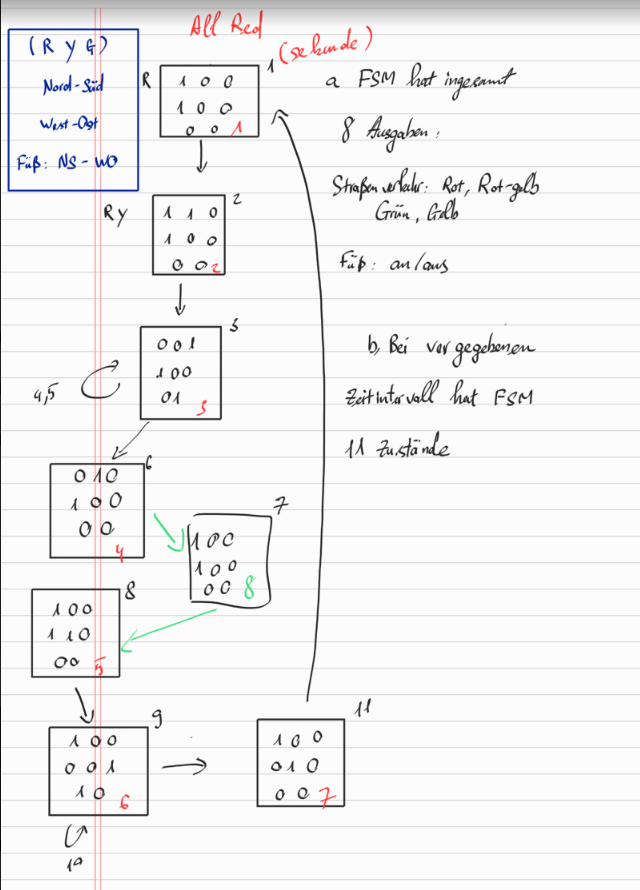 All Red
(sekunde)
(R Y G)
Nord-Süd
West-Ost
Füß: NS - WO
R
1
1 0 0
1 0 0
0 0 1
RY
2
1 1 0
1 0 0
0 0 2
3
0 0 1
1 0 0
0 1 3
4,5
6
0 1 0
1 0 0
0 0
4
7
1 0 0
1 0 0
0 0 8
8
1 0 0
1 1 0
0 0 5
9
1 0 0
0 0 1
1 0 6
10
11
1 0 0
0 1 0
0 0 7
a FSM hat ingesamt
8 Ausgaben:
Straßenverkehr: Rot, Rot-gelb
Grün, Gelb
Füß: an/aus
b, Bei vorgegebenen
Zeitintervall hat FSM
11 Zustände